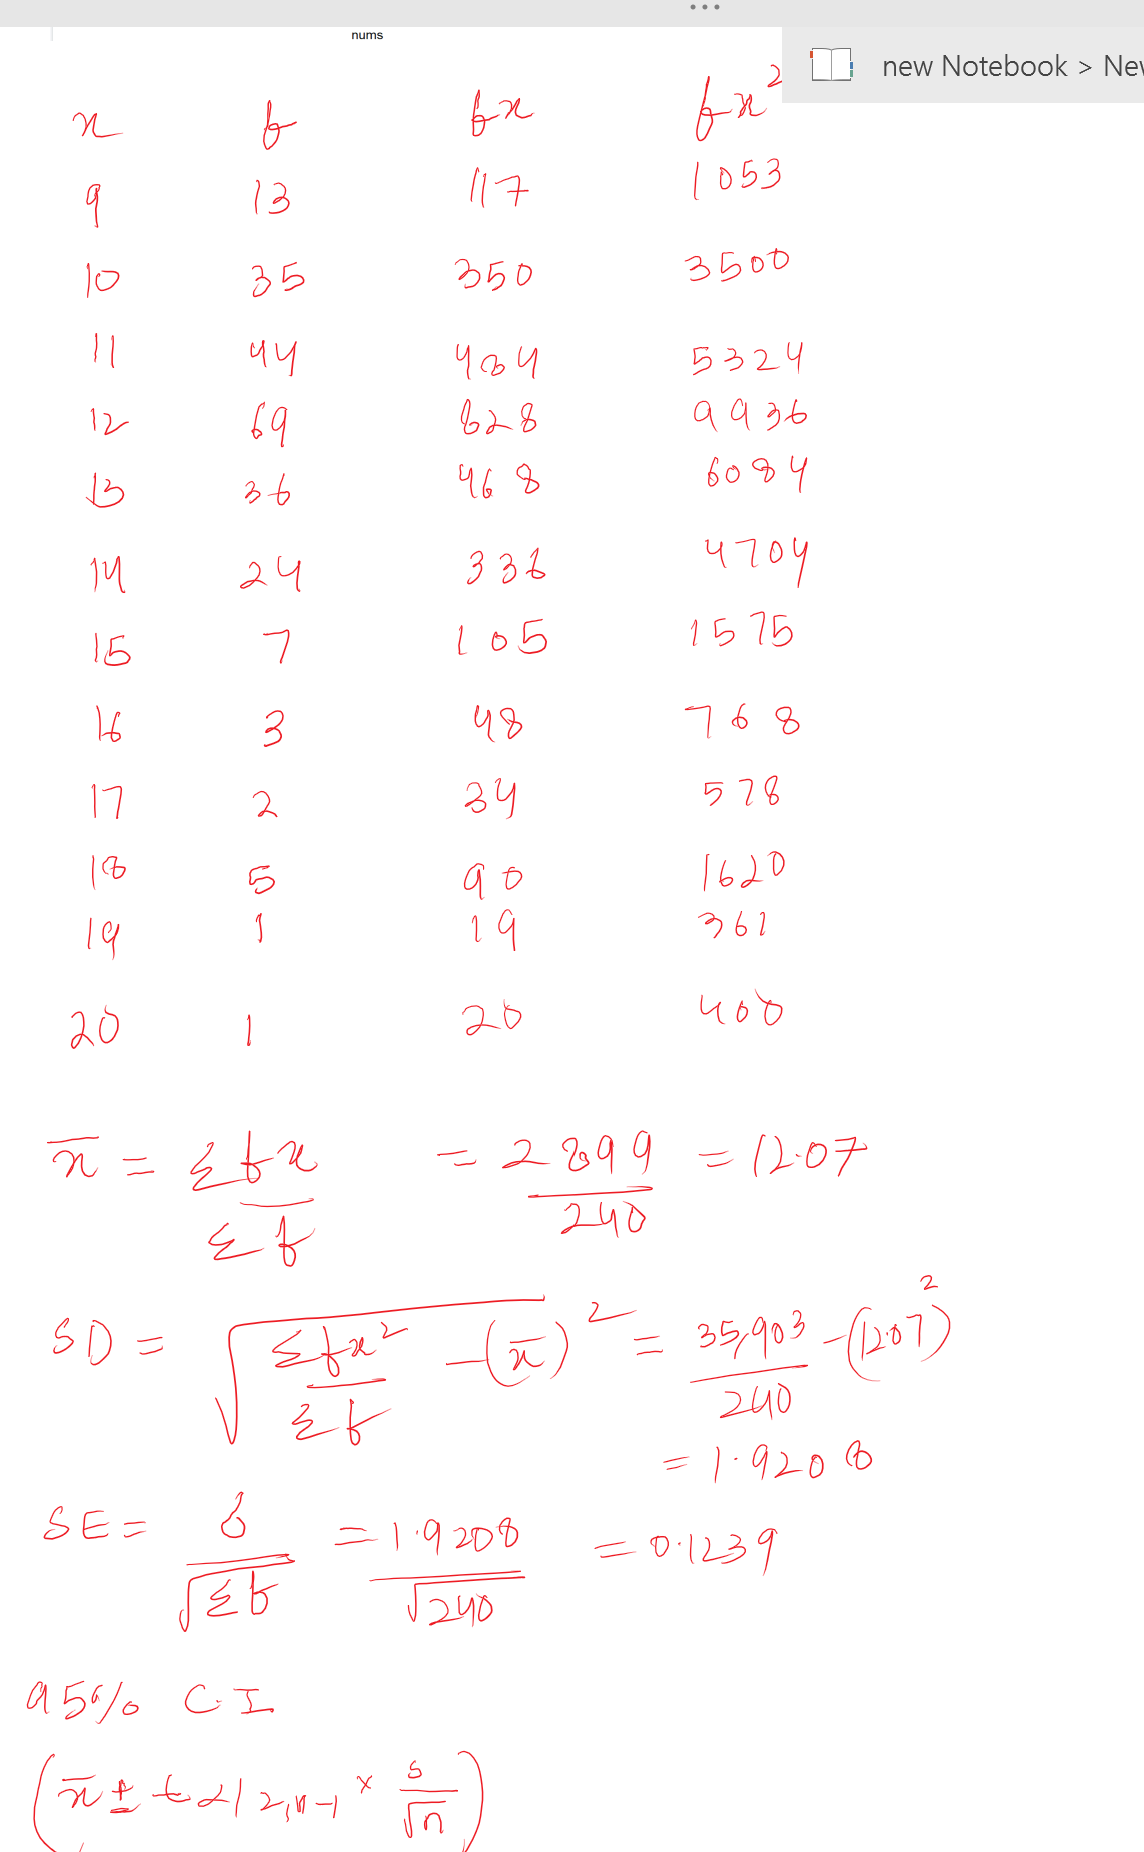 nums
new Notebook > New
x f fx fx²
9 13 117 1053
10 35 350 3500
11 44 484 5324
12 69 828 9936
13 36 468 6084
14 24 336 4704
15 7 105 1575
16 3 48 768
17 2 34 578
18 5 90 1620
19 1 19 361
20 1 20 400
x̄ = Σfx / Σf = 2899 / 240 = 12.07
SD = √(Σfx² / Σf - (x̄)²) = 35,903 / 240 - (12.07)²
= 1.9208
SE = σ / √Σf = 1.9208 / √240 = 0.1239
95% C.I
(x̄ ± t α/2,n-1 × s/√n)